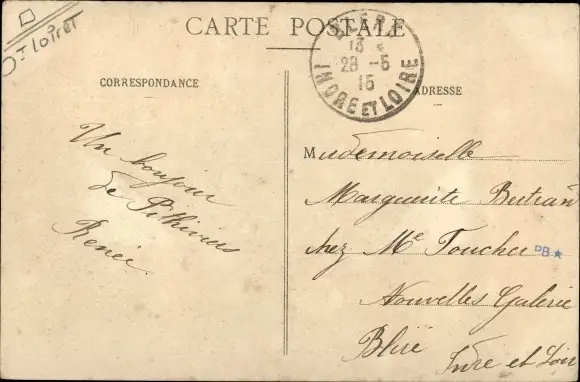 Dt Loiret
CARTE POSTALE
BLÉRÉ
13
28 -5
15
INDRE ET LOIRE
CORRESPONDANCE
ADRESSE
Un bonjour
de Pithiviers
Renée.
Mademoiselle
Marguerite Bertrand
chez Me Toucher
DB★
Nouvelles Galerie
Bliré
Indre et Loire